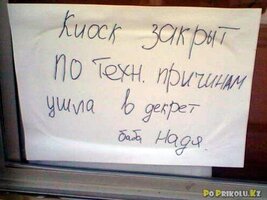 Киоск закрыт
по техн. причинам
ушла в декрет
баба Надя.
PoPrikolu.Kz